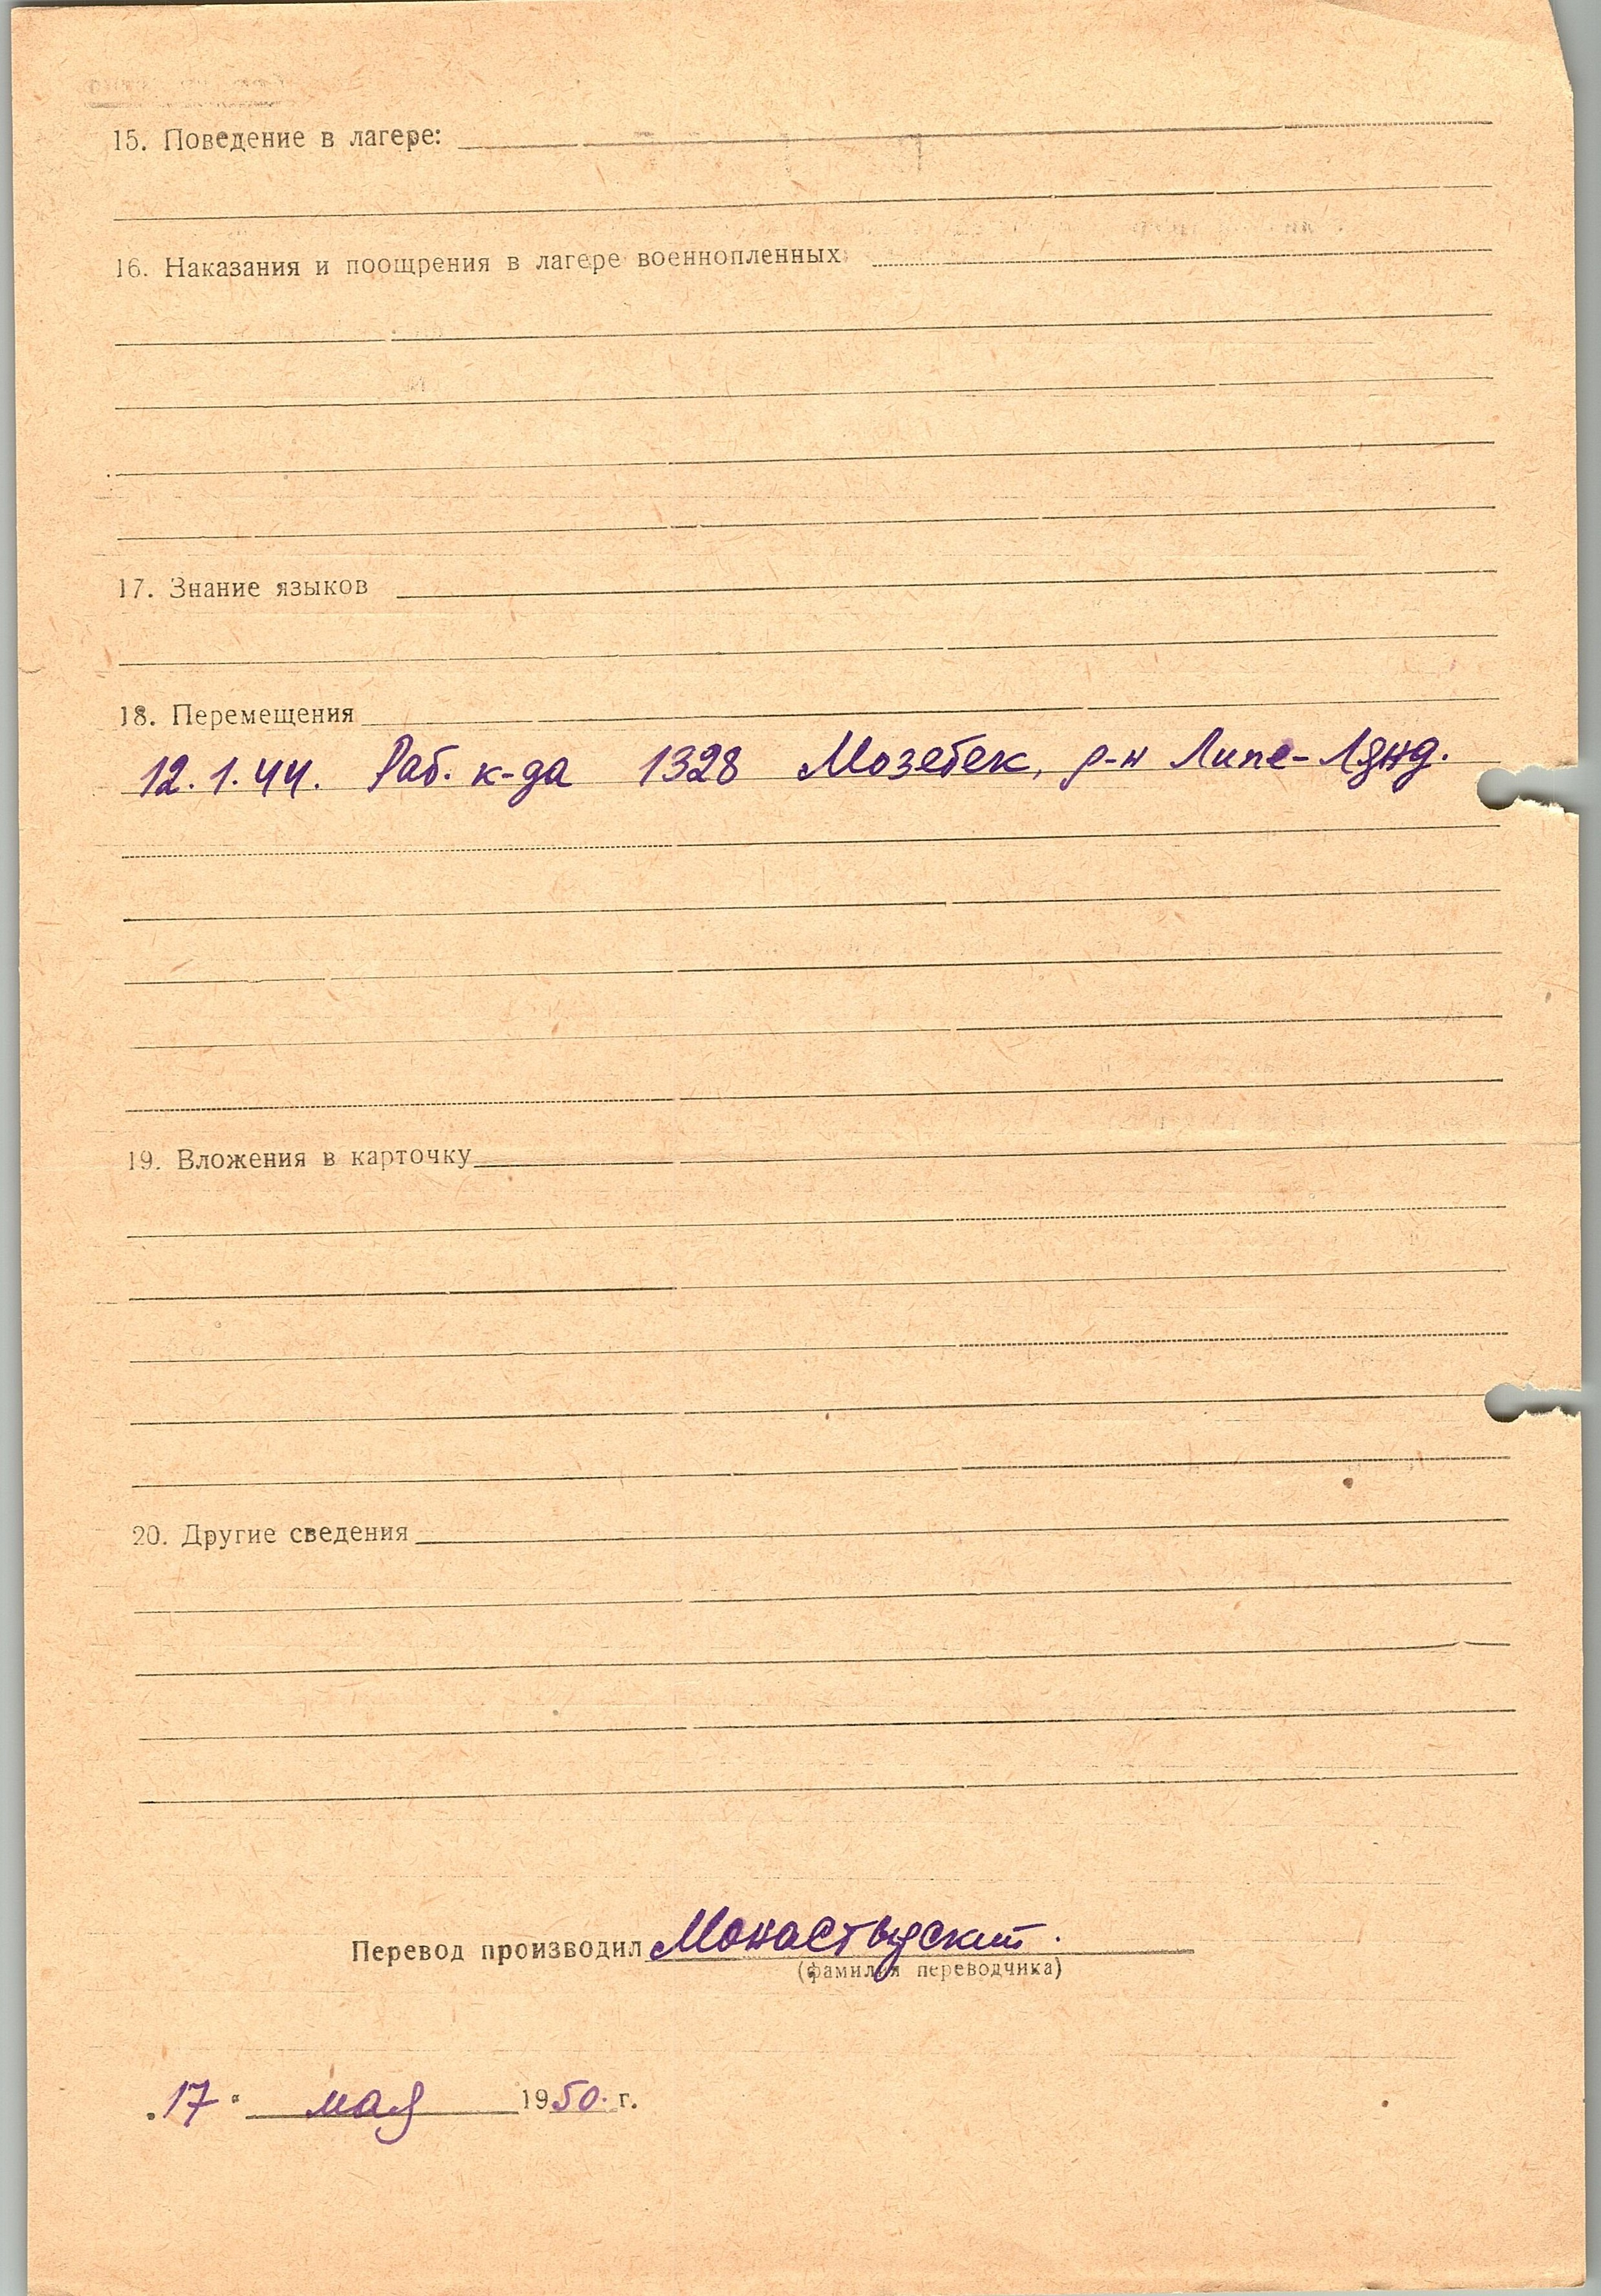 15. Поведение в лагере:
16. Наказания и поощрения в лагере военнопленных:
17. Знание языков
18. Перемещения
12.1.44. Раб. к-да 1328 Мозебек, р-н Липе-Лянд.
19. Вложения в карточку
20. Другие сведения
Перевод производил Монастырский.
(фамилия переводчика)
„17" мая 1950. г.